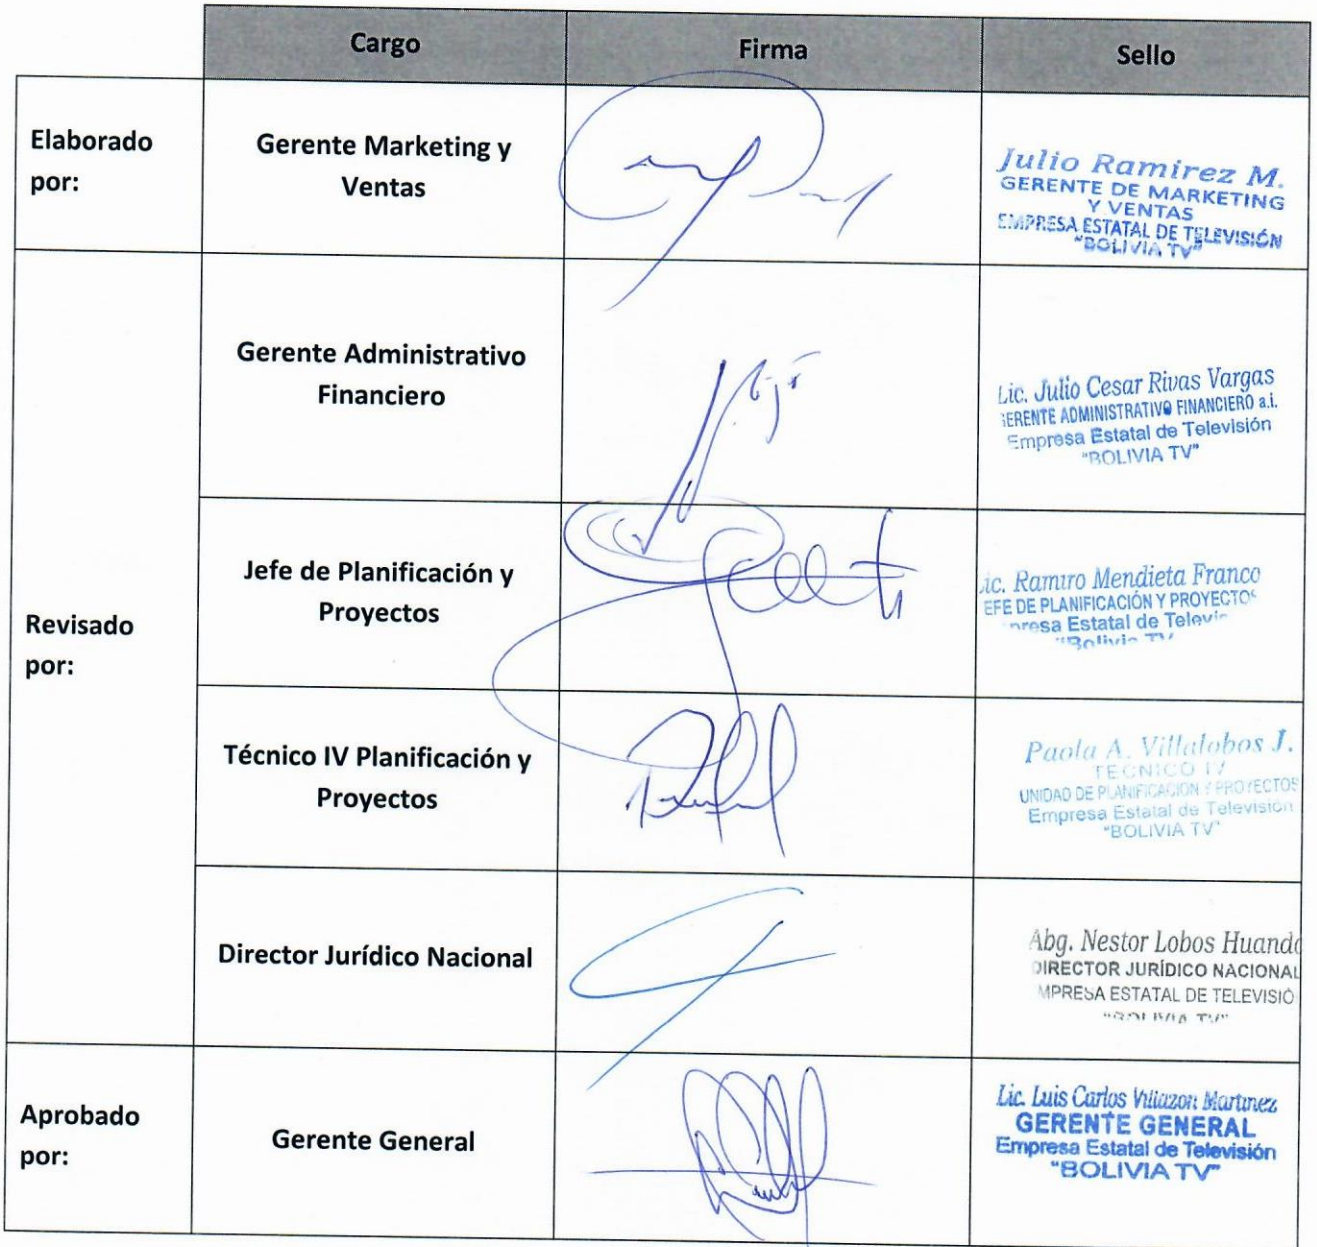 Cargo Firma Sello
Elaborado
por:
Gerente Marketing y
Ventas
Julio Ramirez M.
GERENTE DE MARKETING
Y VENTAS
EMPRESA ESTATAL DE TELEVISIÓN
"BOLIVIA TV"
Revisado
por:
Gerente Administrativo
Financiero
Lic. Julio Cesar Rivas Vargas
GERENTE ADMINISTRATIVO FINANCIERO a.i.
Empresa Estatal de Televisión
"BOLIVIA TV"
Jefe de Planificación y
Proyectos
ic. Ramiro Mendieta Franco
EFE DE PLANIFICACIÓN Y PROYECTOS
presa Estatal de Televi
"Bolivia TV
Técnico IV Planificación y
Proyectos
Paola A. Villalobos J.
TECNICO IV
UNIDAD DE PLANIFICACION Y PROYECTOS
Empresa Estatal de Televisión
"BOLIVIA TV"
Director Jurídico Nacional
Abg. Nestor Lobos Huand
DIRECTOR JURÍDICO NACIONAL
MPRESA ESTATAL DE TELEVISIÓ
"BOLIVIA TV"
Aprobado
por:
Gerente General
Lic. Luis Carlos Villazon Martinez
GERENTE GENERAL
Empresa Estatal de Televisión
"BOLIVIA TV"